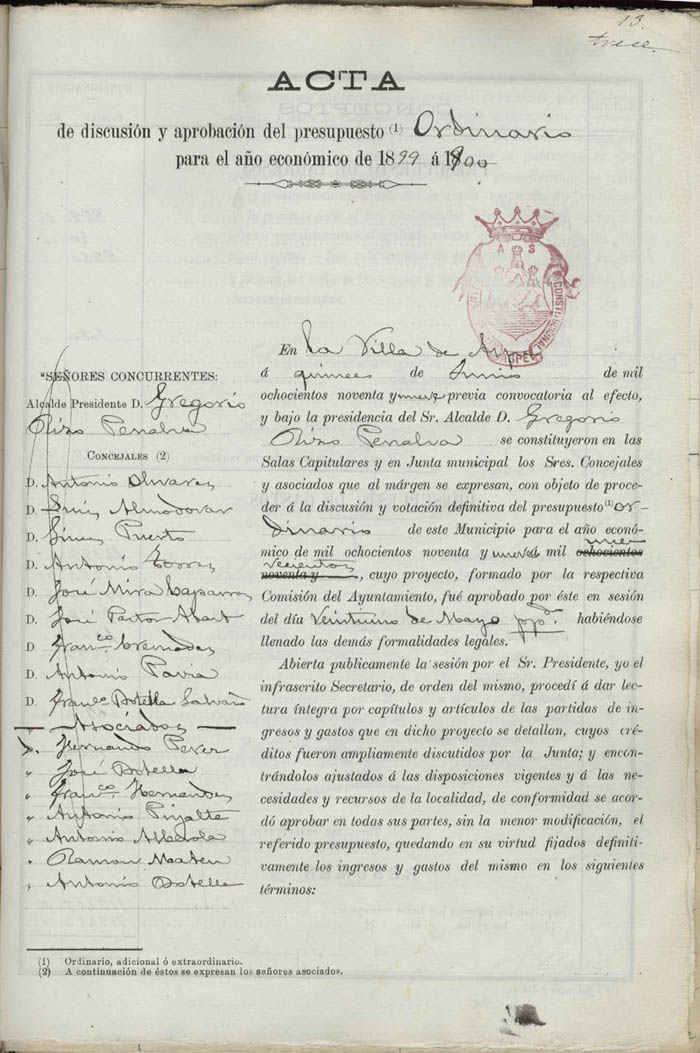 13.
trece.
ACTA
de discusión y aprobación del presupuesto (1) Ordinario
para el año económico de 1899 á 1900
A S
CONSTITUCIONAL
ASPE
"SEÑORES CONCURRENTES:
Alcalde Presidente D. Gregorio
Rizo Penalva
CONCEJALES (2)
D. Antonio Olivares
D. Luis Almodovar
D. Gines Puerto
D. Antonio Torres
D. José Mira Caparros
D. José Pastor Abart
D. Franco Cremades
D. Antonio Pavia
D. Franco Botella Salvañ
Asociados
D. Hernando Perez
" José Botella
" Franco Hernandez
" Antonio Pujalte
" Antonio Albadola
" Ramon Maten
" Antonio Botella
En La Villa de Aspe
á quince de Junio de mil
ochocientos noventa y nueve previa convocatoria al efecto,
y bajo la presidencia del Sr. Alcalde D. Gregorio
Rizo Penalva se constituyeron en las
Salas Capitulares y en Junta municipal los Sres. Concejales
y asociados que al márgen se expresan, con objeto de proce-
der á la discusión y votación definitiva del presupuesto (1) or-
dinario de este Municipio para el año econó-
mico de mil ochocientos noventa y nueve á mil ochocientos nove-
cientos
noventa y , cuyo proyecto, formado por la respectiva
Comisión del Ayuntamiento, fué aprobado por éste en sesión
del día Veintiuno de Mayo ppdo. habiéndose
llenado las demás formalidades legales.
Abierta publicamente la sesión por el Sr. Presidente, yo el
infrascrito Secretario, de orden del mismo, procedí á dar lec-
tura íntegra por capítulos y artículos de las partidas de in-
gresos y gastos que en dicho proyecto se detallan, cuyos cré-
ditos fueron ampliamente discutidos por la Junta; y encon-
trándolos ajustados á las disposiciones vigentes y á las ne-
cesidades y recursos de la localidad, de conformidad se acor-
dó aprobar en todas sus partes, sin la menor modificación, el
referido presupuesto, quedando en su virtud fijados definiti-
vamente los ingresos y gastos del mismo en los siguientes
términos:
(1) Ordinario, adicional ó extraordinario.
(2) A continuación de éstos se expresan los señores asociados.